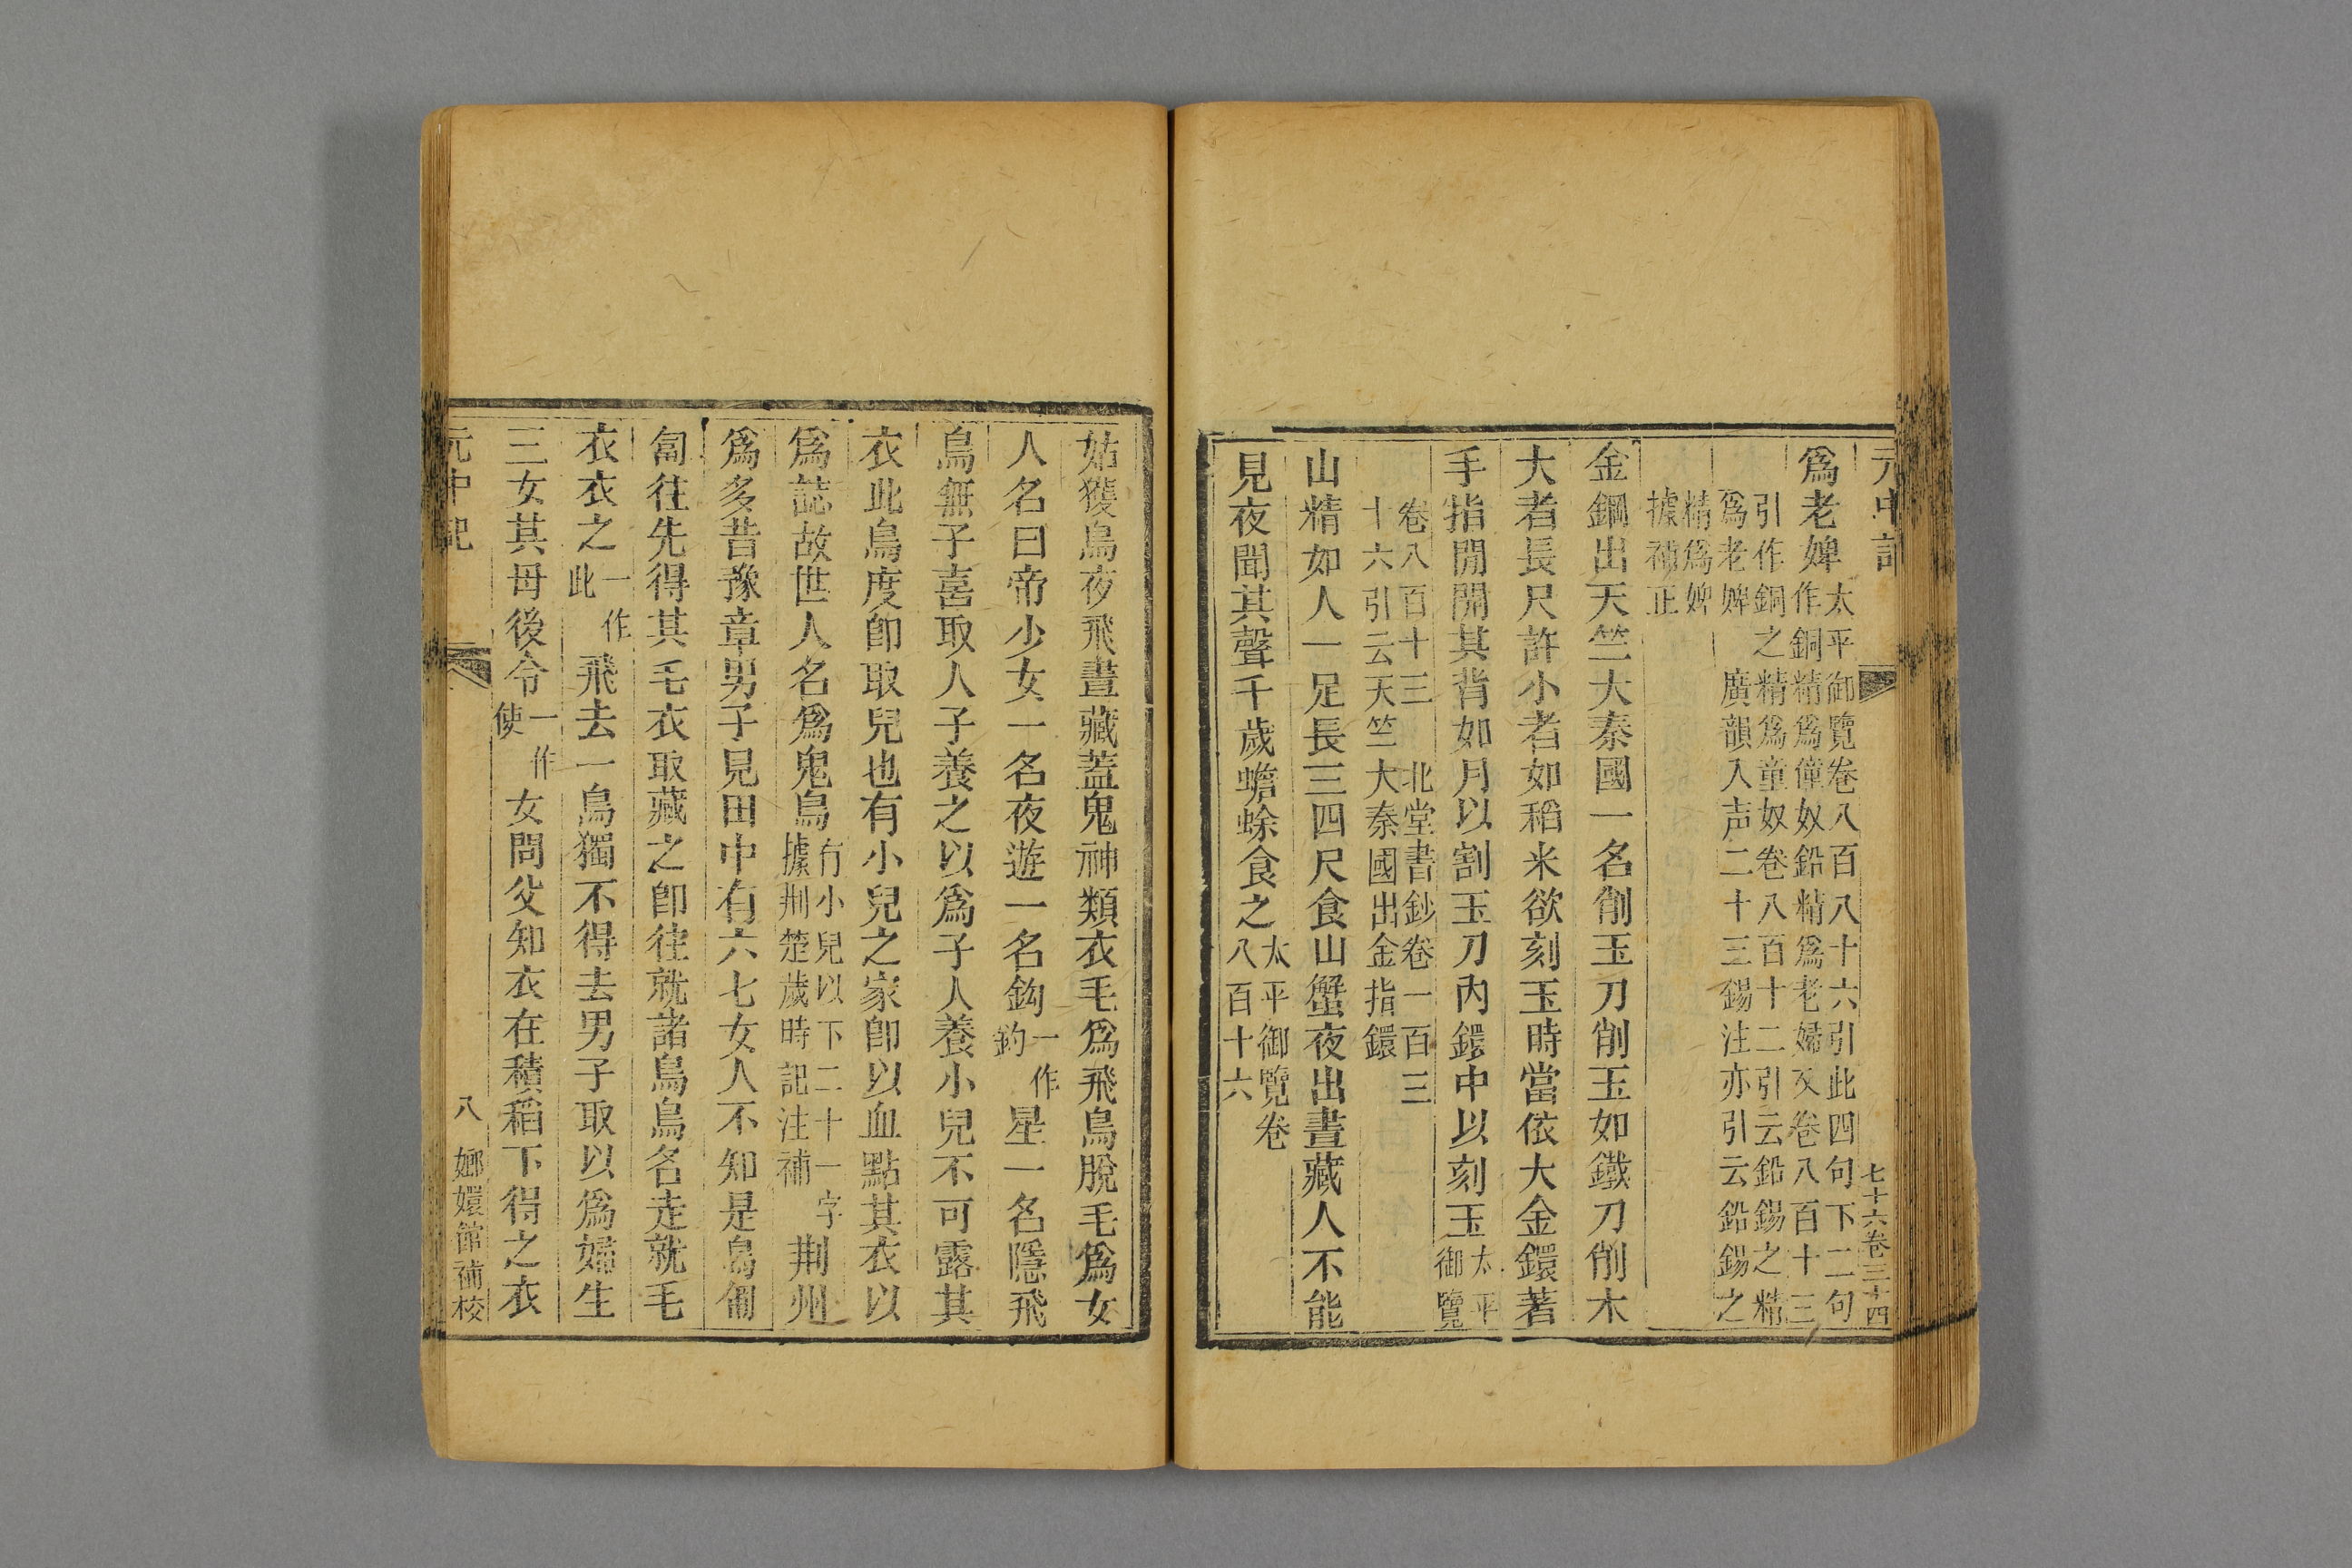 元中記
七十六卷三十四
爲老婢太平御覽卷八百八十六引此四句下二句
作銅精爲僮奴鉛精爲老婦又卷八百十三
引作銅之精爲童奴卷八百十二引云鉛錫之精
爲老婢 廣韻入声二十三錫注亦引云鉛錫之
精爲婢
據補正
金鋼出天竺大秦國一名削玉刀削玉如鐵刀削木
大者長尺許小者如稻米欲刻玉時當依大金鐶著
手指閒開其背如月以割玉刀內鐶中以刻玉太平
御覽
卷八百十三 北堂書鈔卷一百三
十六引云天竺大秦國出金指鐶
山精如人一足長三四尺食山蟹夜出晝藏人不能
見夜聞其聲千歲蟾蜍食之太平御覽卷
八百十六
姑獲鳥夜飛晝藏蓋鬼神類衣毛爲飛鳥脫毛爲女
人名曰帝少女一名夜遊一名鈎一作
釣星一名隱飛
鳥無子喜取人子養之以爲子人養小兒不可露其
衣此鳥度卽取兒也有小兒之家卽以血點其衣以
爲誌故世人名爲鬼鳥有小兒以下二十一字
據荆楚歲時記注補荆州
爲多昔豫章男子見田中有六七女人不知是鳥匍
匐往先得其毛衣取藏之卽往就諸鳥鳥各走就毛
衣衣之一作
此飛去一鳥獨不得去男子取以爲婦生
三女其母後令一作
使女問父知衣在積稻下得之衣
元中記
八
嫏嬛館補校